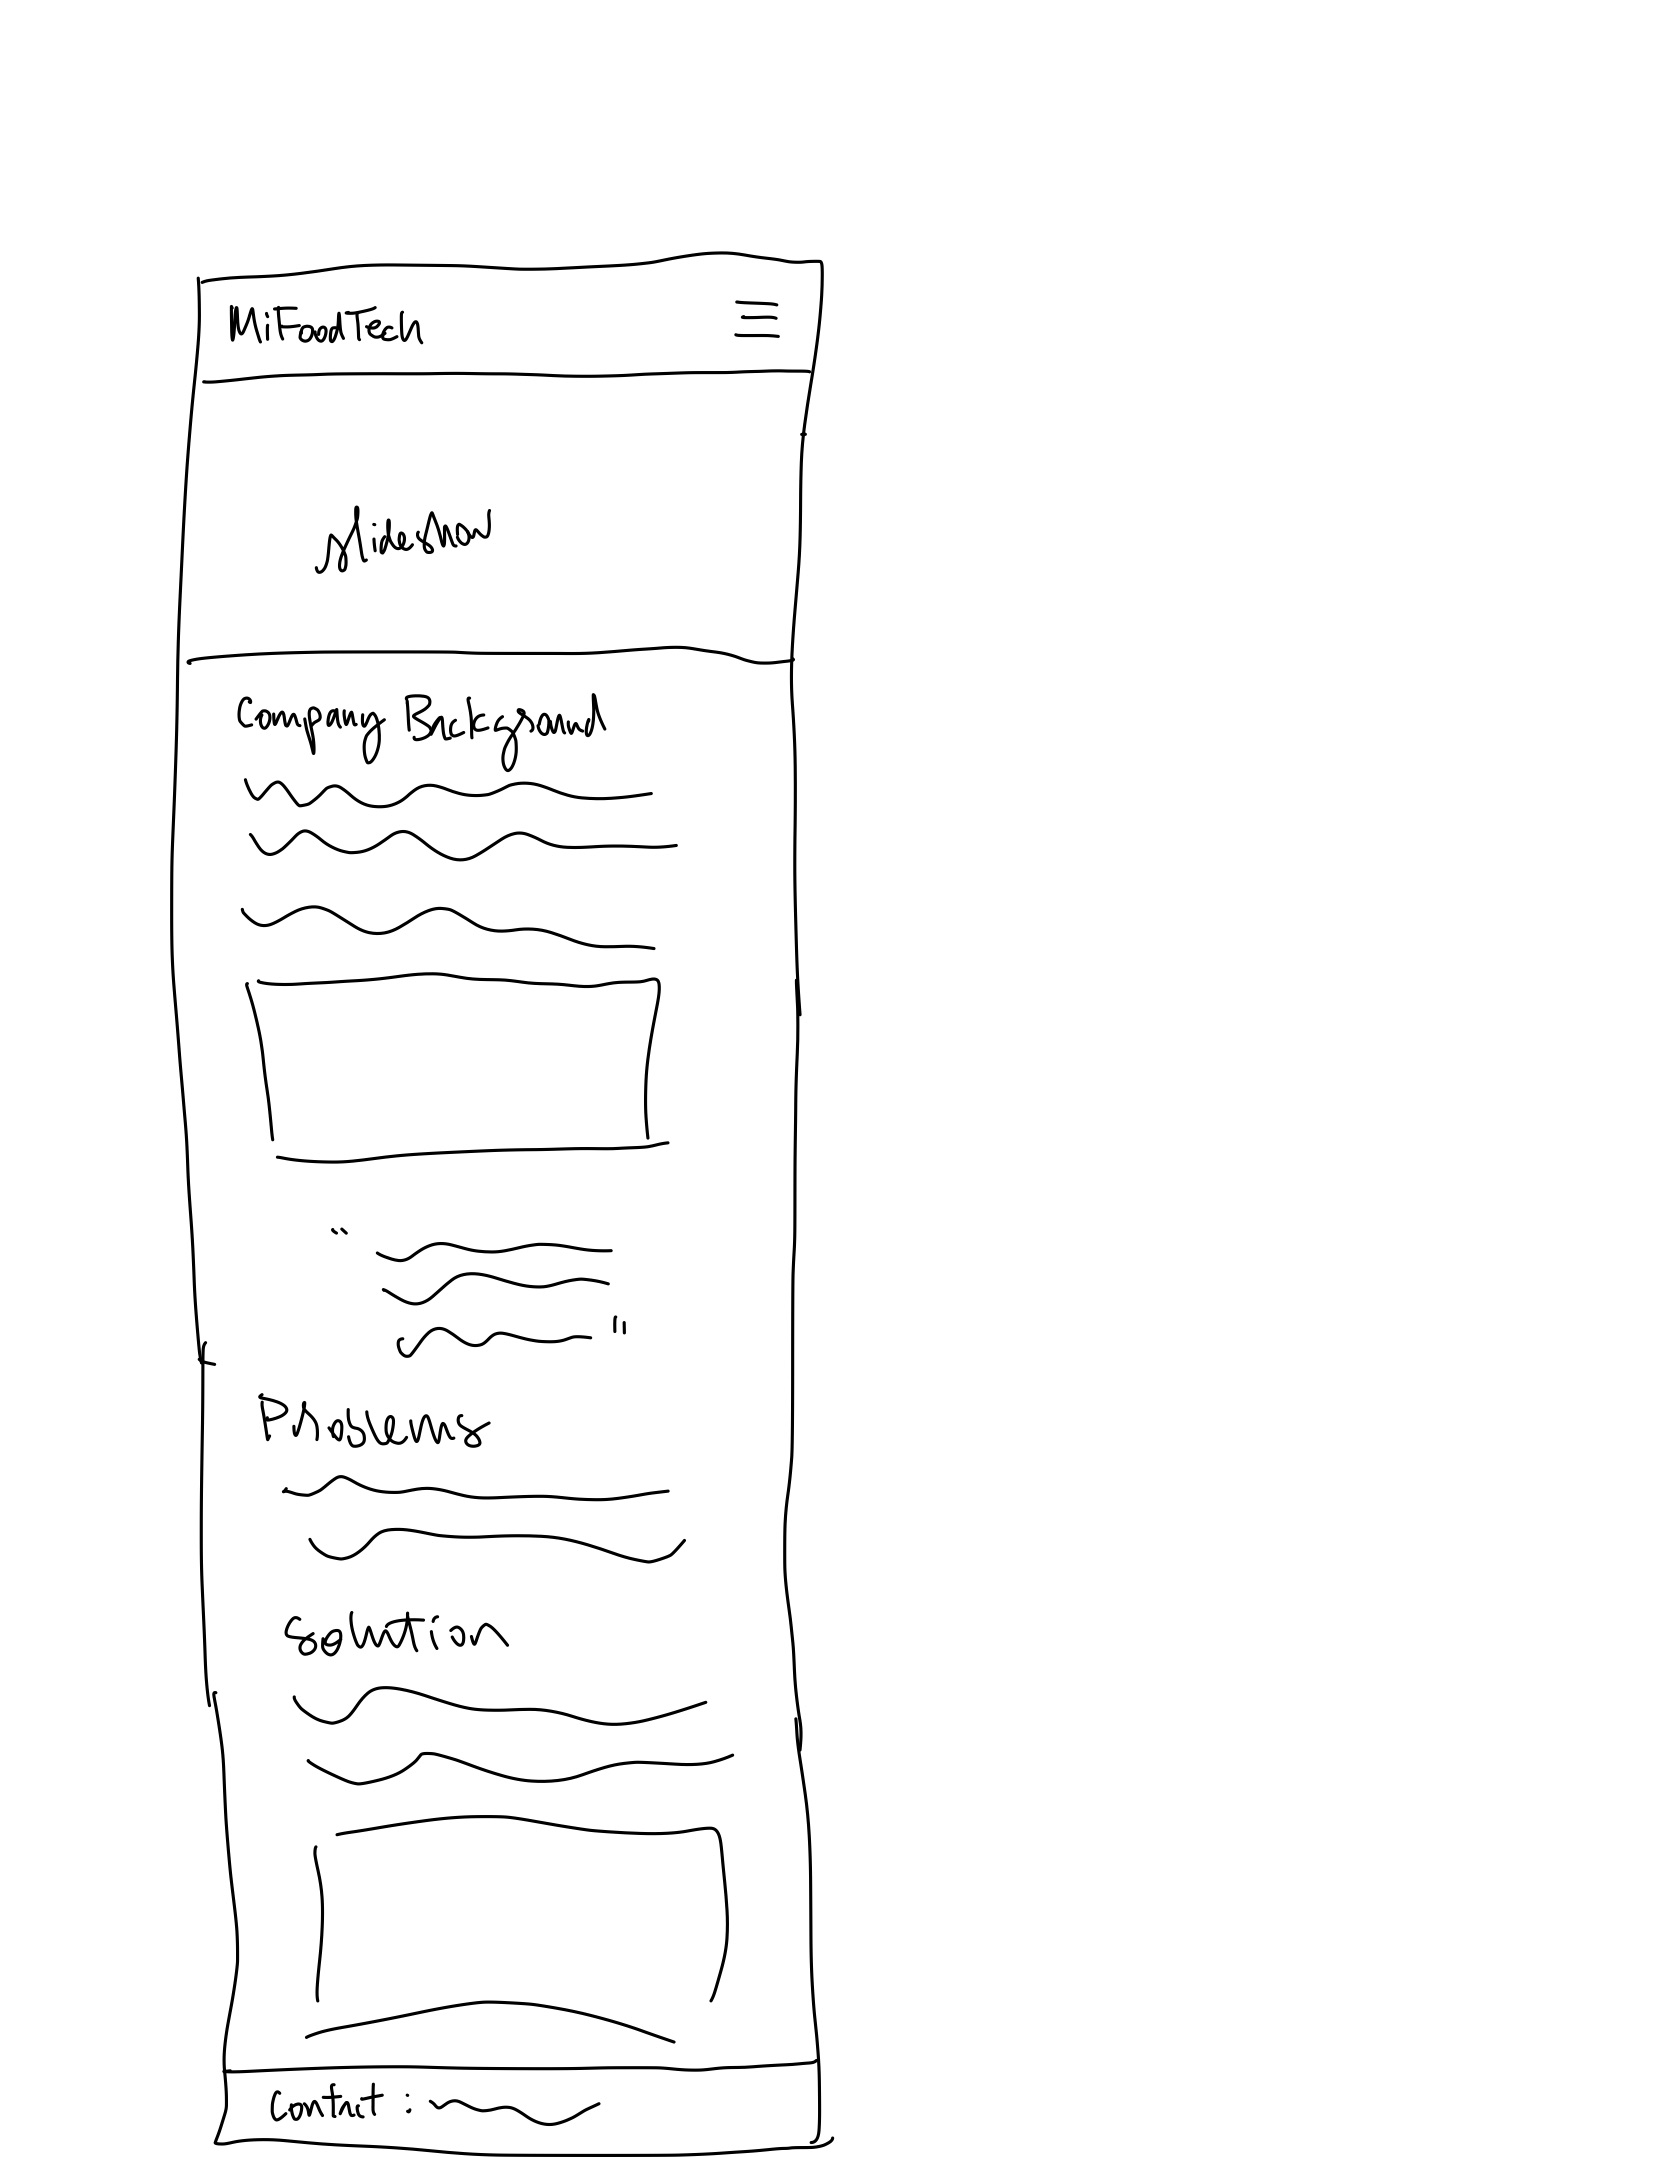 MiFoodTech
slideshow
Company Background
"
"
Problems
Solution
Contact :